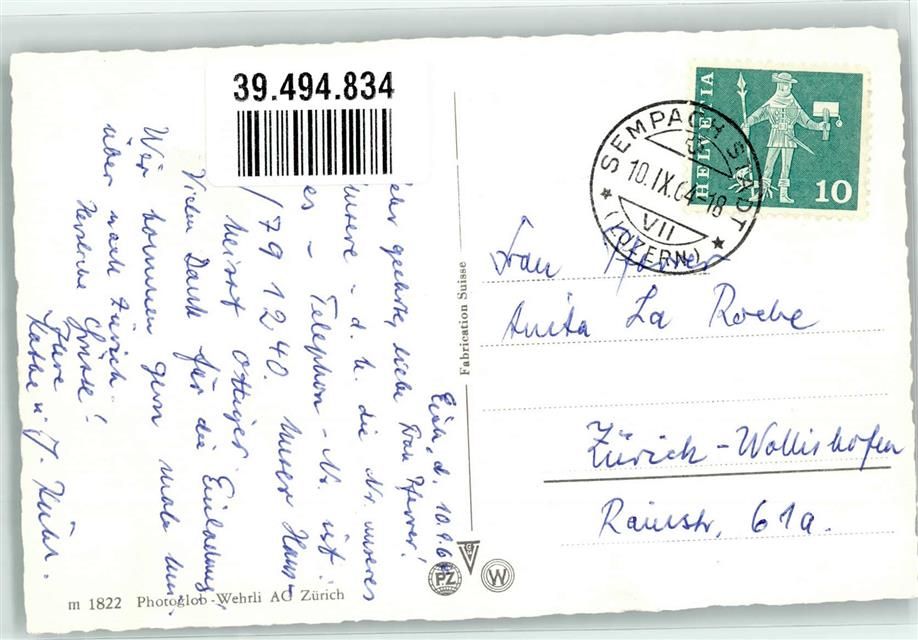 39.494.834
HELVETIA
10
SEMPACH STADT
10.IX.64-18
VII
(LUZERN)
Frau Pfarrer
Anita La Roche
Zürich-Wollishofen
Rainstr. 61a.
Fabrication Suisse
Eich, d. 10.9.64
geehrte, liebe Frau Pfarrer!
unsere - d. h. die Nr. unseres
es - Telephon - Nr. ist:
/ 79 12 40. Unser Haus-
heisst Ottiger.
Vielen Dank für die Einladung,
Wir kommen gern mal hin-
über nach Zürich.
Herzliche Grüsse!
Ihre
PZ
W
m 1822 Photoglob-Wehrli AG Zürich